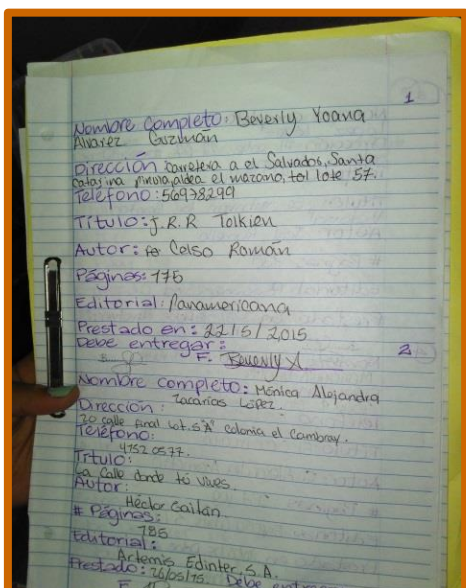 1
Nombre completo: Beverly Yoana
Alvarez Guzmán
Dirección carretera a el Salvador, Santa
catarina pinula, aldea el manzano, tol lote 57.
Teléfono: 56978299
Título: J. R. R Tolkien
Autor: Celso Román
Páginas: 175
Editorial: Panamericana
Prestado en: 22/5/2015
Debe entregar:
F. Beverly A
2
Nombre completo: Mónica Alejandra
Zacarías López.
Dirección:
20 calle final lot. 5 "A" colonia el Cambray.
Teléfono:
4752 0577.
Título:
La Calle donde tú vives.
Autor:
Héctor Gaitán
# Páginas:
785
Editorial:
Artemis Edinter, S. A.
Prestado: 26/05/15. Debe
F.